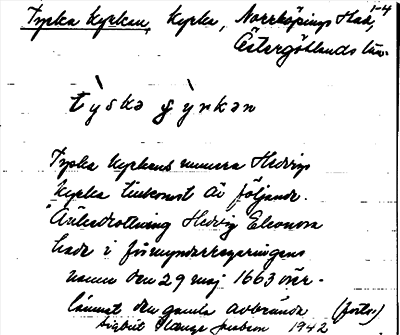 1-4
Tyska Kyrkan, Kyrka, Norrköpings stad,
Östergötlands län.
tyska çyrkan
Tyska kyrkans numera Hedvigs
kyrka tillkomst är följande.
"Änkedrottning Hedvig Eleonora
hade i förmyndarregeringens
namn den 29 maj 1663 över-
lämnat den gamla avbrända (forts.)
1942